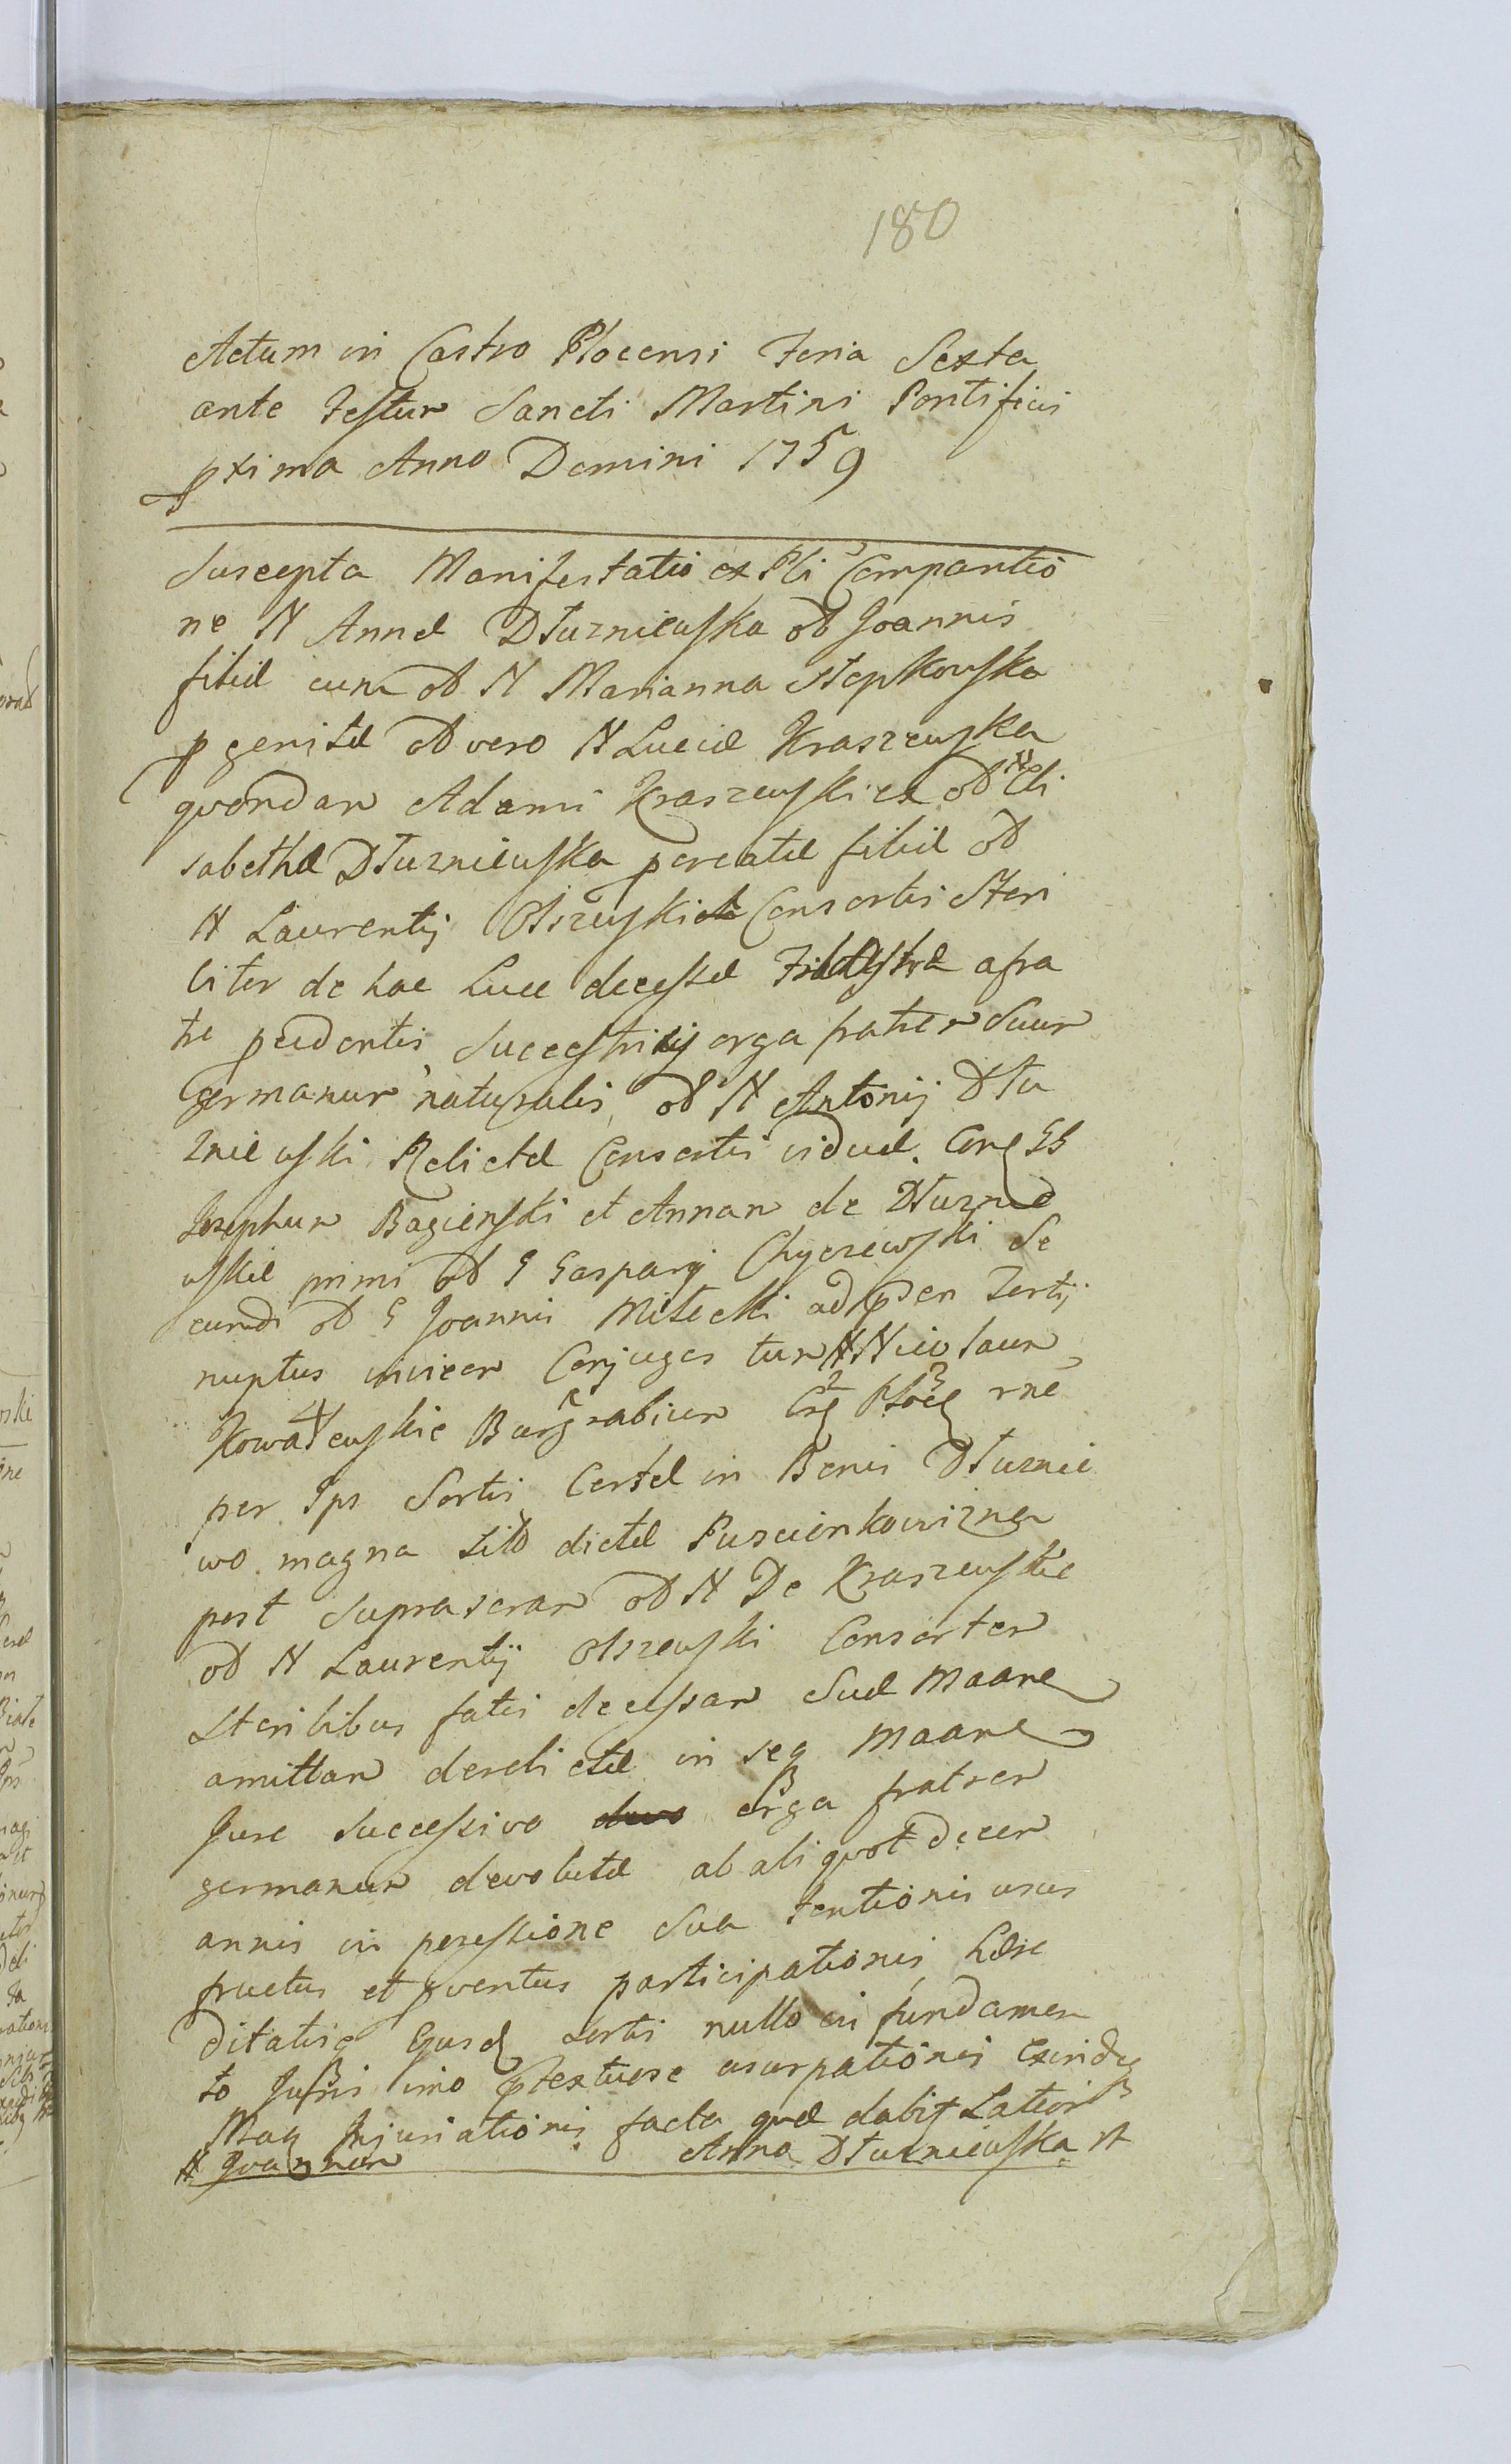 180
Actum in Castro Plocensi Feria Sexta
ante Festum Sancti Martini Pontificis
pxima Anno Domini 1759
Suscepta Manifestatio ex Pli Comparitio
ne N Annæ Dłuzniewska olt Joannis
filiæ cum olt N Marianna Stępkowska
pgenitæ olt vero N Luciæ Kraszewska
quondam Adami Kraszewski ex olt N Eli
sabetha Dłuzniewska pcreatæ filiæ olt
N Laurentij Olszewski Consortis Steri
liter de hac Luce decessæ a fra
tre pcedentis Successricis erga fratrem Suum
germanum naturalis, olt N Antonij Dłu
zniewski Relictæ Consortis viduæ. Cora GG
Josephum Bagieński et Annam de Dłuznie
wskie primi olt G Gaspary Chyczewski Se
cundi olt G Joannis Milecki ad psen Tertij
nuptus invicem Conjuges tum N Nicolaum
Kowalewskie Burgrabium Crg Płoc rne
per Ips Sortis Certæ in Bonis Dłuznie
wo magna sito dictæ Puscionkowizna
post suprascram olt N De Kraszewskie
olt N Laurentij Olszewski Consortem
sterilibus fatis decessam Suæ Maane
amittam derelictæ in seq Maane
Jure successivo erga fratrem
germanum devolutæ ab aliquot decem
annis in possessione Sua tentionis usus
fructus et pventus participationis hære
ditatisq Ejusd Sortis nullo in fundamen
to Jusris imo ptextuose usurpationis Exindeq
Mag Injuriationis facta quæ dabit Latior
N Joannem Anna Dłuzniewska